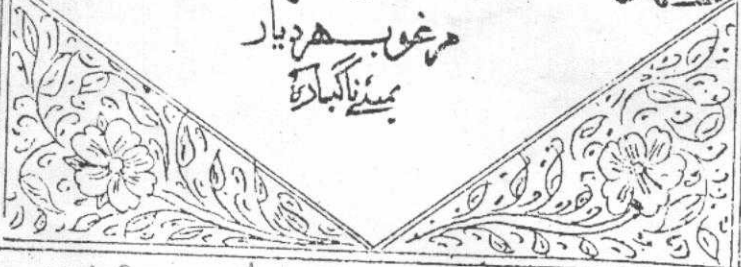 مرغوب ہر دیار
بمبئے ناگپاڑہ